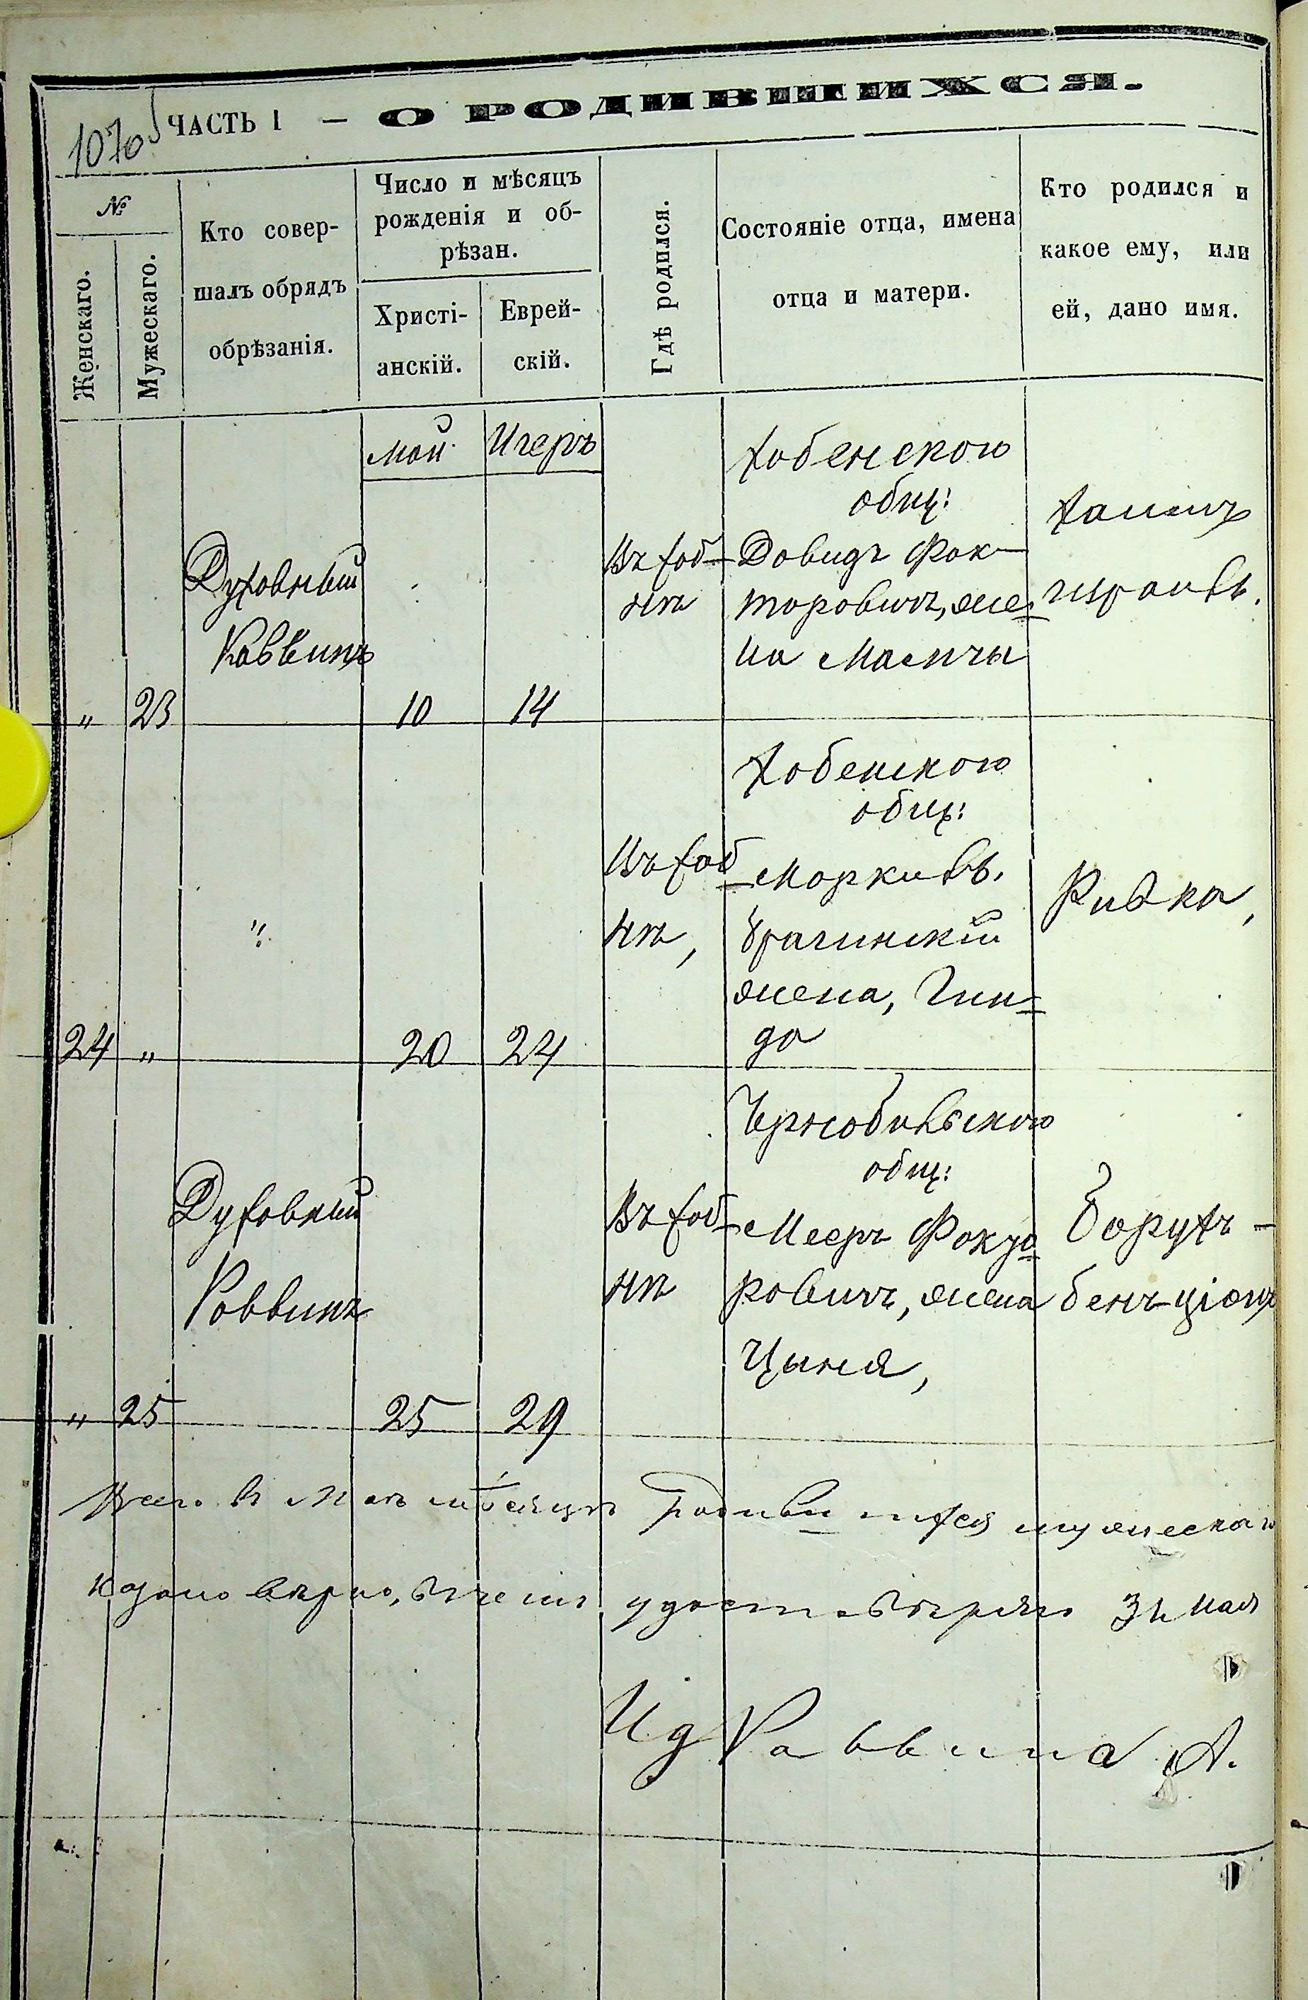 1070
ЧАСТЬ I — О РОДИВШИХСЯ.
№
Женскаго.
Мужескаго.
Кто совер-
шалъ обрядъ
обрѣзанія.
Число и мѣсяцъ
рожденія и об-
рѣзан.
Христі-
анскій.
Еврей-
скій.
Гдѣ родился.
Состояніе отца, имена
отца и матери.
Кто родился и
какое ему, или
ей, дано имя.
Май
Игеръ
" 23
Духовный
Раввинъ
10
14
Въ Хоб-
нѣ
Хобенского
общ:
Довидъ Фак-
торовичъ, же-
на
Израиль.
24 "
"
20
24
Въ Хоб-
нѣ,
Хобенского
общ:
жена, Гин-
да
Ривка,
" 25
Духовный
Раввинъ
25
29
Въ Хоб-
нѣ
общ:
Мееръ Факто-
ровичъ, жена
Цыня,
Борухъ-
бенъ-ціонъ
Всего в Маѣ мѣсяцѣ родившихся мужескаго
вѣрно, въ чемъ удостовѣряю 31 мая
Ид Раввина А.